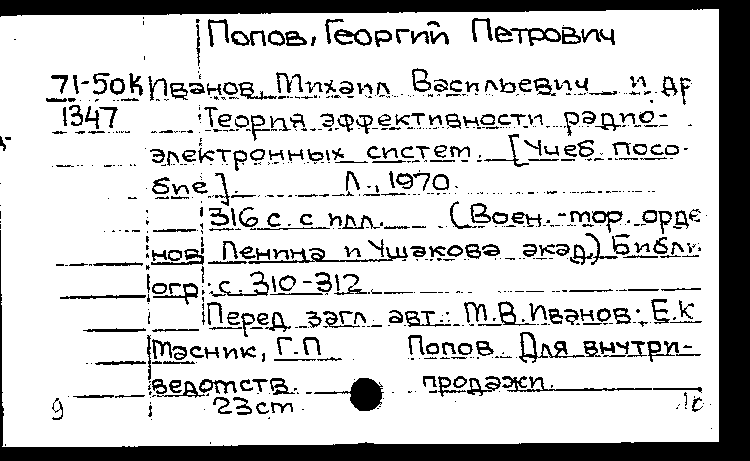 Попов, Георгий Петрович
71-50к Иванов, Михаил Васильевич и др
1347 Теория эффективности радио-
электронных систем. [Учеб. посо-
бие]. Л., 1970.
316 с. с илл. (Воен.-мор. орде
нов Ленина и Ушакова акад.) Библи
огр: с. 310-312
Перед загл авт.: М.В. Иванов, Е.К
Масник, Г.П Попов. Для внутри-
ведомств. продажи.
9 23 cm